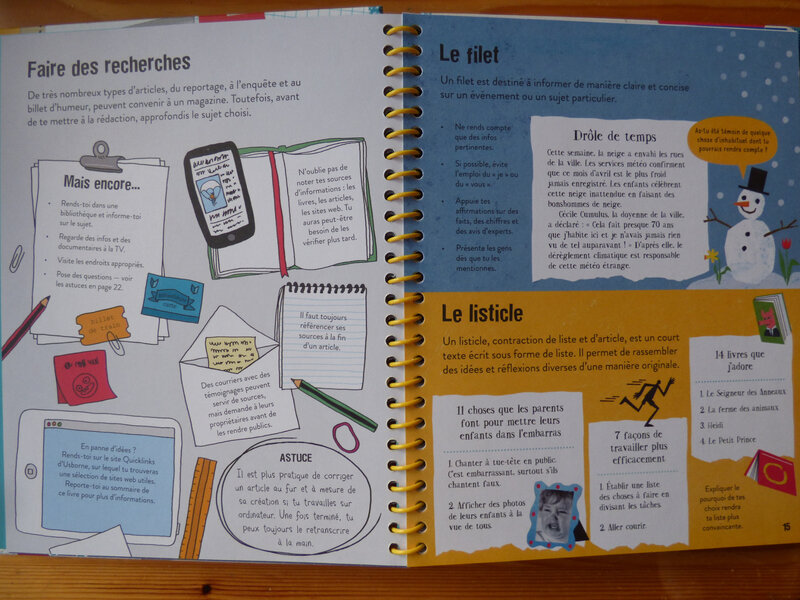 Faire des recherches
De très nombreux types d'articles, du reportage, à l'enquête et au
billet d'humeur, peuvent convenir à un magazine. Toutefois, avant
de te mettre à la rédaction, approfondis le sujet choisi.
Mais encore...
• Rends-toi dans une
bibliothèque et informe-toi
sur le sujet.
• Regarde des infos et des
documentaires à la TV.
• Visite les endroits appropriés.
• Pose des questions — voir
les astuces en page 22.
N'oublie pas de
noter tes sources
d'informations : les
livres, les articles,
les sites web. Tu
auras peut-être
besoin de les
vérifier plus tard.
billet
de train
Il faut toujours
référencer ses
sources à la fin
d'un article.
Des courriers avec des
témoignages peuvent
servir de sources,
mais demande à leurs
propriétaires avant de
les rendre publics.
En panne d'idées ?
Rends-toi sur le site Quicklinks
d'Usborne, sur lequel tu trouveras
une sélection de sites web utiles.
Reporte-toi au sommaire de
ce livre pour plus d'informations.
ASTUCE
Il est plus pratique de corriger
un article au fur et à mesure de
sa création si tu travailles sur
ordinateur. Une fois terminé, tu
peux toujours le retranscrire
à la main.
Le filet
Un filet est destiné à informer de manière claire et concise
sur un événement ou un sujet particulier.
• Ne rends compte
que des infos
pertinentes.
• Si possible, évite
l'emploi du « je » ou
du « vous ».
• Appuie tes
affirmations sur des
faits, des chiffres et
des avis d'experts.
• Présente les gens
dès que tu les
mentionnes.
Drôle de temps
Cette semaine, la neige a envahi les rues
de la ville. Les services météo confirment
que ce mois d'avril est le plus froid
jamais enregistré. Les enfants célèbrent
cette neige inattendue en faisant des
bonshommes de neige.
Cécile Cumulus, la doyenne de la ville,
a déclaré : « Cela fait presque 70 ans
que j'habite ici et je n'avais jamais rien
vu de tel auparavant ! » D'après elle, le
dérèglement climatique est responsable
de cette météo étrange.
As-tu été témoin de quelque
chose d'inhabituel dont tu
pourrais rendre compte ?
Le listicle
Un listicle, contraction de liste et d'article, est un court
texte écrit sous forme de liste. Il permet de rassembler
des idées et réflexions diverses d'une manière originale.
11 choses que les parents
font pour mettre leurs
enfants dans l'embarras
1. Chanter à tue-tête en public.
C'est embarrassant, surtout s'ils
chantent faux.
2. Afficher des photos
de leurs enfants à la
vue de tous
7 façons de
travailler plus
efficacement
1. Établir une liste
des choses à faire en
divisant les tâches.
2. Aller courir.
14 livres que
j'adore
1. Le Seigneur des Anneaux
2. La ferme des animaux
3. Heidi
4. Le Petit Prince
Expliquer le
pourquoi de tes
choix rendra
ta liste plus
convaincante.
15